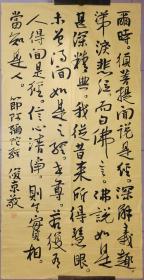 爾時。須菩提聞說是經。深解義趣
涕淚悲泣而白佛言。佛說如是
甚深經典。我從昔來所得慧眼
未曾得聞如是之經。世尊。若復有
人得聞是經。信心清淨。則生實相
當知是人。節阿彌陀經 俊京敬